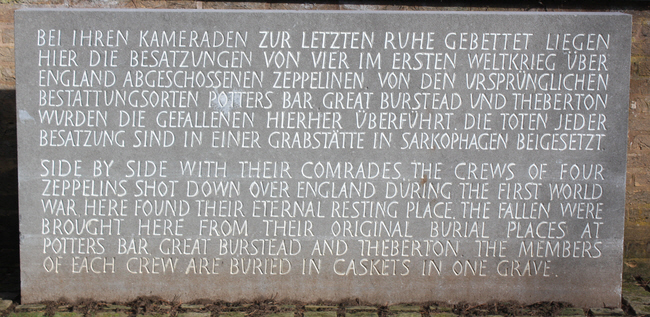 BEI IHREN KAMERADEN ZUR LETZTEN RUHE GEBETTET LIEGEN
HIER DIE BESATZUNGEN VON VIER IM ERSTEN WELTKRIEG ÜBER
ENGLAND ABGESCHOSSENEN ZEPPELINEN. VON DEN URSPRÜNGLICHEN
BESTATTUNGSORTEN POTTERS BAR, GREAT BURSTEAD UND THEBERTON
WURDEN DIE GEFALLENEN HIERHER ÜBERFÜHRT. DIE TOTEN JEDER
BESATZUNG SIND IN EINER GRABSTÄTTE IN SARKOPHAGEN BEIGESETZT
SIDE BY SIDE WITH THEIR COMRADES, THE CREWS OF FOUR
ZEPPELINS SHOT DOWN OVER ENGLAND DURING THE FIRST WORLD
WAR HERE FOUND THEIR ETERNAL RESTING PLACE. THE FALLEN WERE
BROUGHT HERE FROM THEIR ORIGINAL BURIAL PLACES AT
POTTERS BAR GREAT BURSTEAD AND THEBERTON. THE MEMBERS
OF EACH CREW ARE BURIED IN CASKETS IN ONE GRAVE.